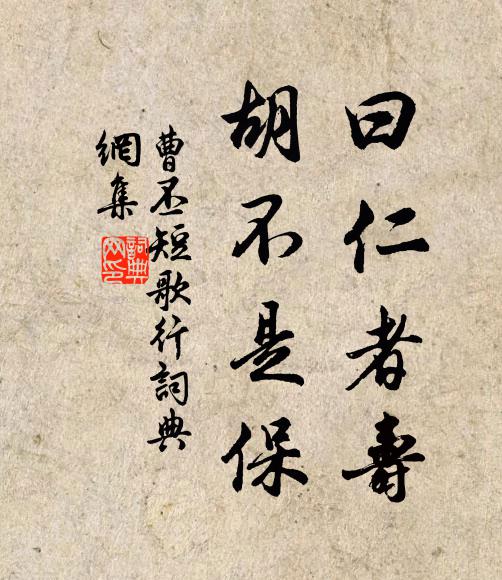 曰仁者壽
胡不是保
曹丕短歌行詞典
網集
詞典
网印